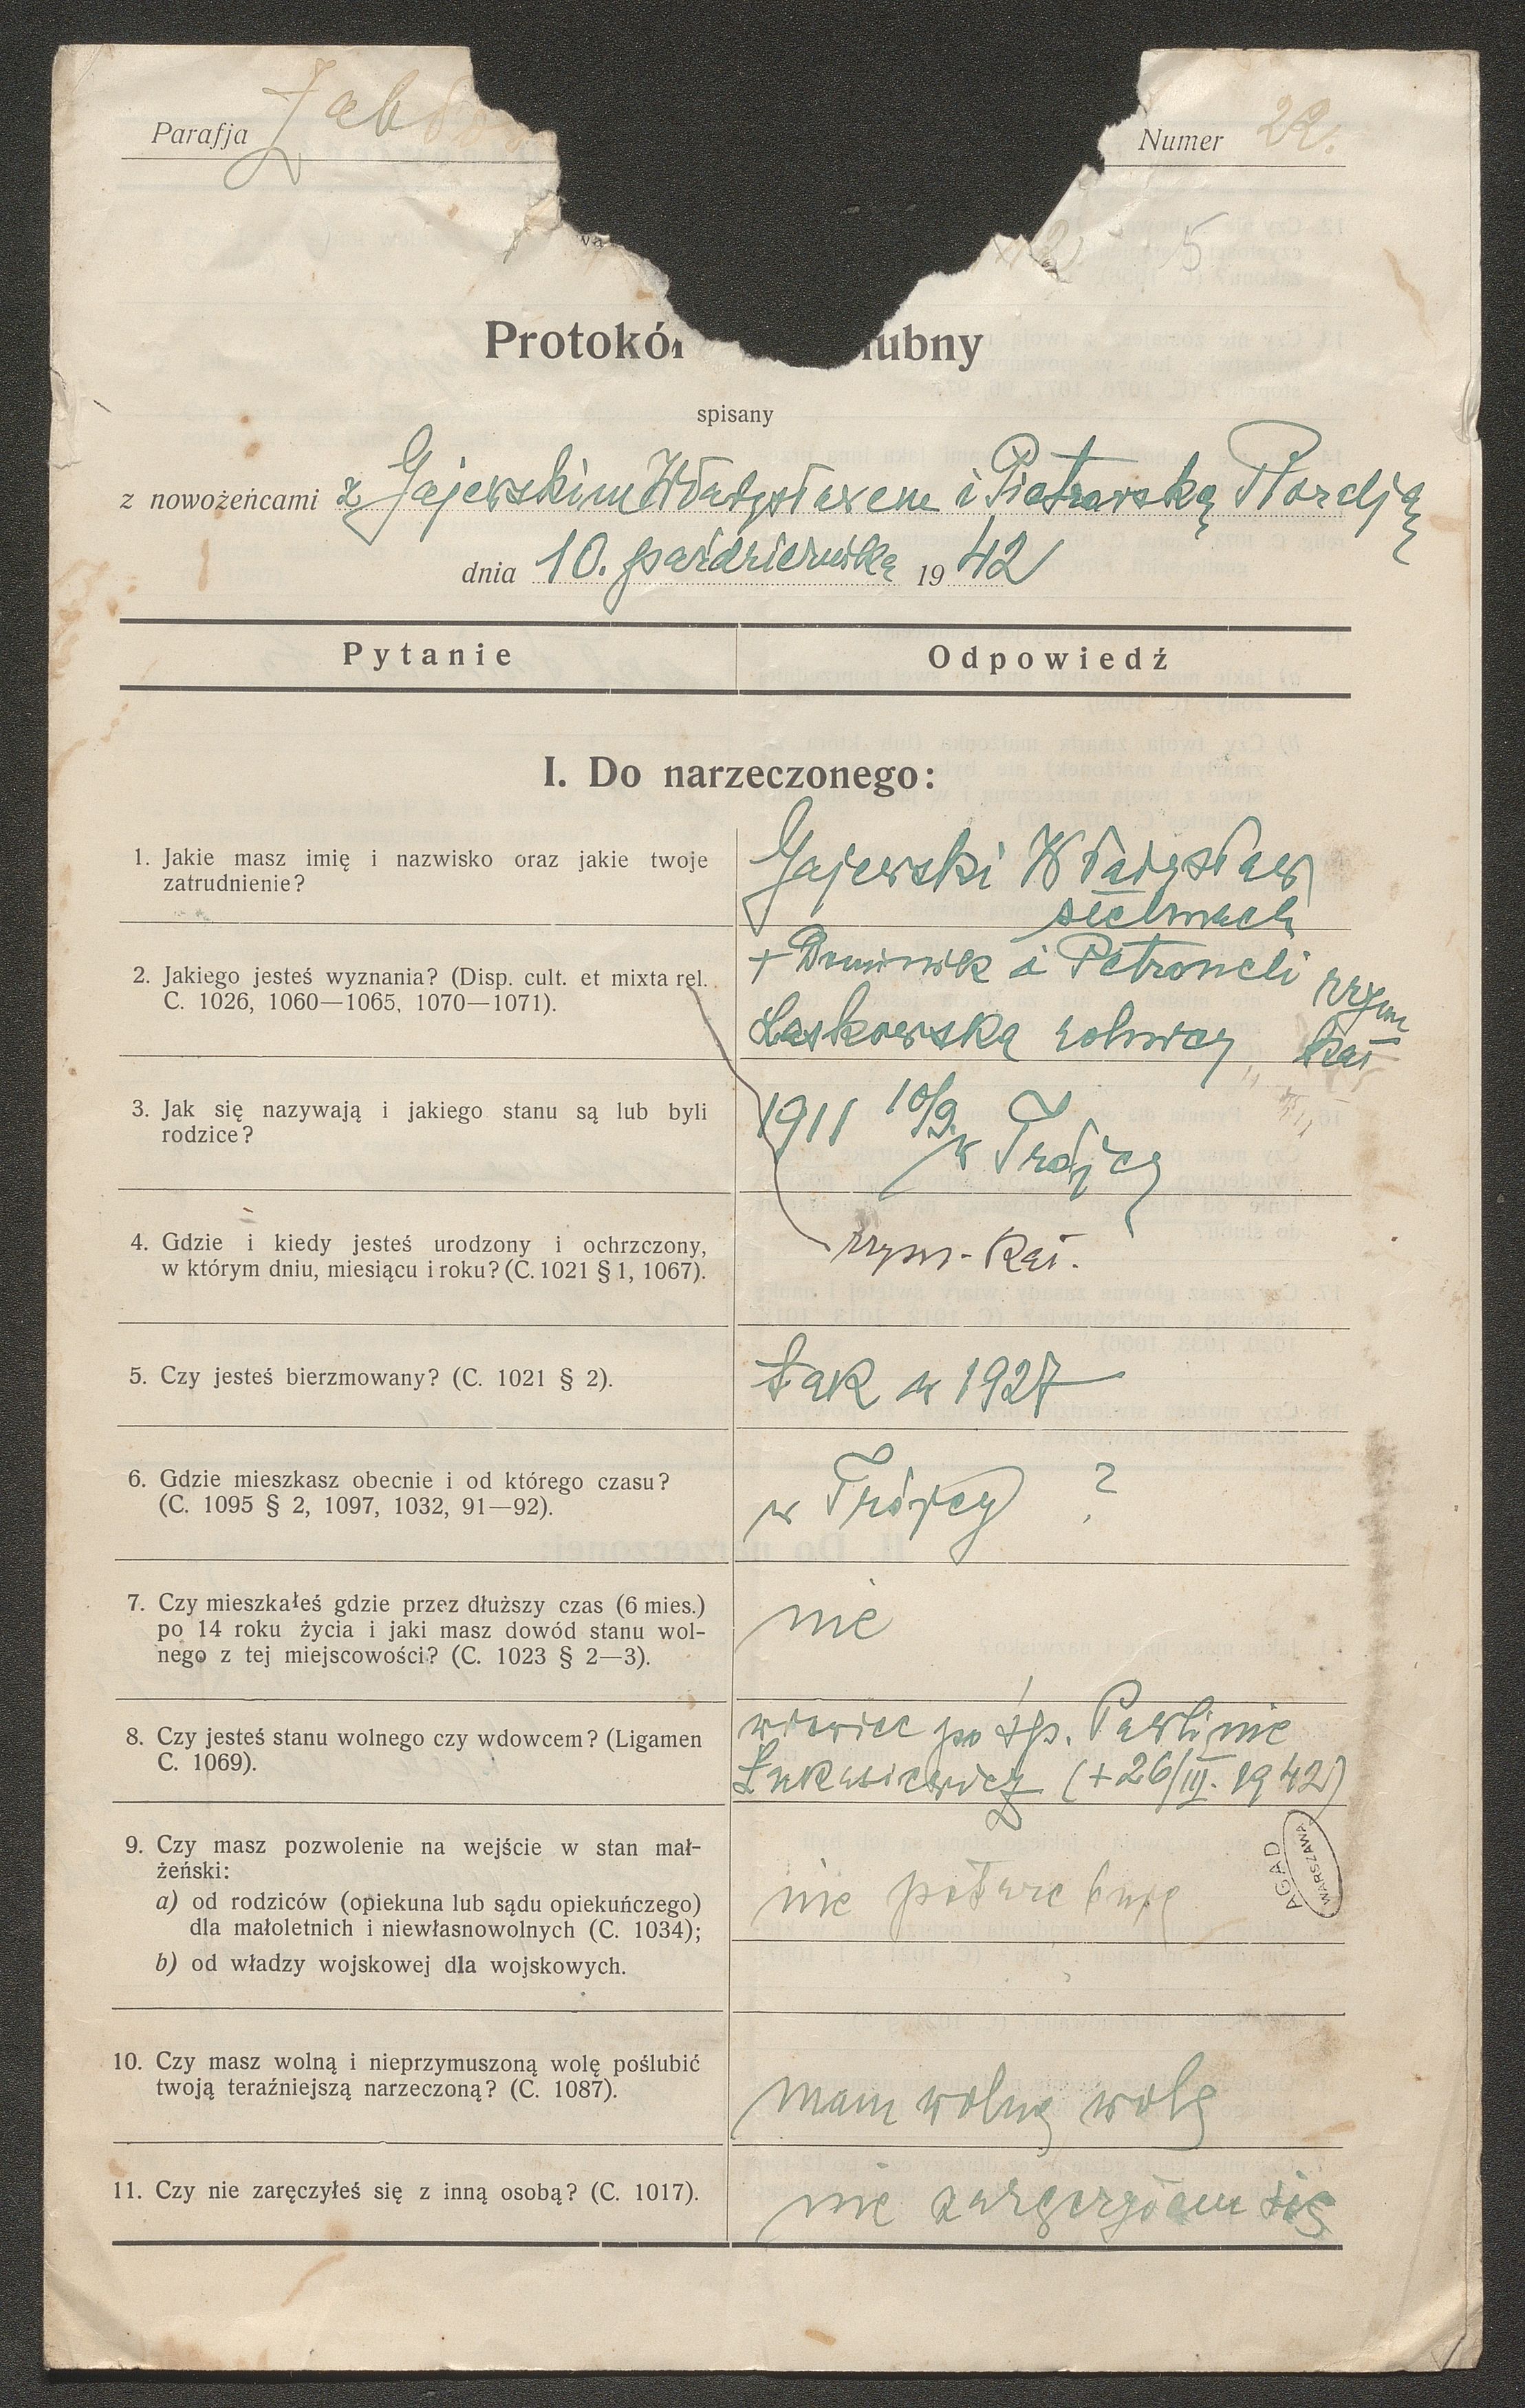 Parafja
Numer 22.
5
Protokó lubny
spisany
z nowożeńcami z Gajewskim Władysławem i Piotrowską
dnia 10. października 1942
Pytanie Odpowiedź
I. Do narzeczonego:
1. Jakie masz imię i nazwisko oraz jakie twoje
zatrudnienie?
Gajewski Władysław
2. Jakiego jesteś wyznania? (Disp. cult. et mixta rel.
C. 1026, 1060—1065, 1070—1071).
+ Dominik i Petroneli rzym
Laskowska rolnicy, kat
3. Jak się nazywają i jakiego stanu są lub byli
rodzice?
1911 10/9. w Trójcy
4. Gdzie i kiedy jesteś urodzony i ochrzczony,
w którym dniu, miesiącu i roku? (C. 1021 § 1, 1067).
rzym-kat.
5. Czy jesteś bierzmowany? (C. 1021 § 2).
tak w 1927
6. Gdzie mieszkasz obecnie i od którego czasu?
(C. 1095 § 2, 1097, 1032, 91—92).
w Trójcy ?
7. Czy mieszkałeś gdzie przez dłuższy czas (6 mies.)
po 14 roku życia i jaki masz dowód stanu wol-
nego z tej miejscowości? (C. 1023 § 2—3).
nie
8. Czy jesteś stanu wolnego czy wdowcem? (Ligamen
C. 1069).
wdowiec po śp. Pawlinie
Łukasiewicz (+26/III. 1942)
9. Czy masz pozwolenie na wejście w stan mał-
żeński:
a) od rodziców (opiekuna lub sądu opiekuńczego)
dla małoletnich i niewłasnowolnych (C. 1034);
b) od władzy wojskowej dla wojskowych.
nie potrzebuję
AGAD
WARSZAWA
10. Czy masz wolną i nieprzymuszoną wolę poślubić
twoją teraźniejszą narzeczoną? (C. 1087).
mam wolną wolę
11. Czy nie zaręczyłeś się z inną osobą? (C. 1017).
nie zaręczyłem się